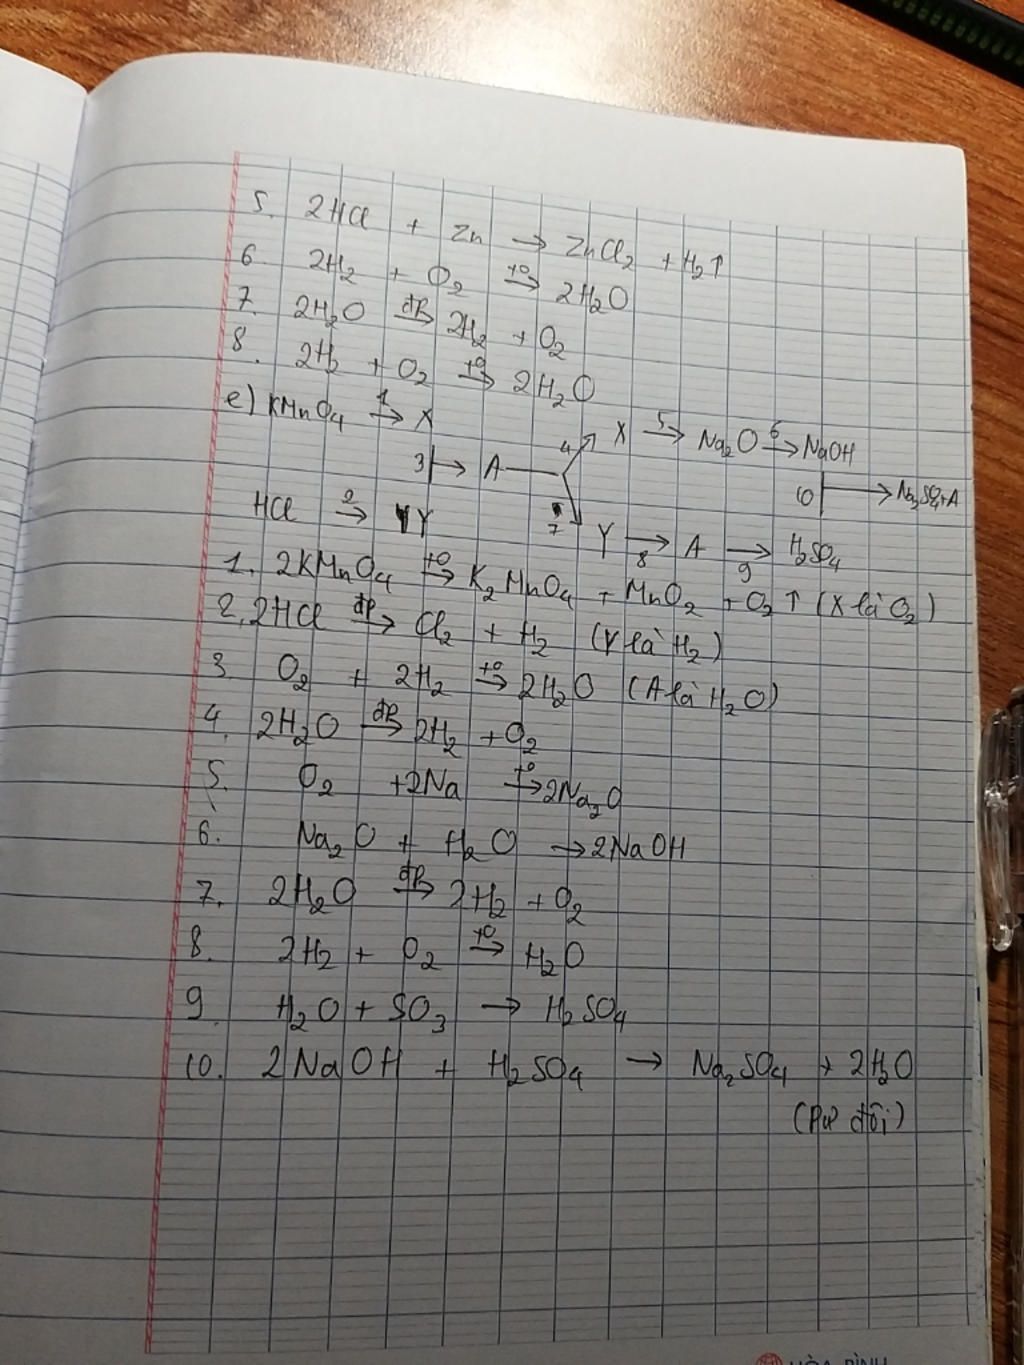 5. 2HCl + Zn → ZnCl₂ + H₂↑
6. 2H₂ + O₂ →(t°) 2H₂O
7. 2H₂O →(đp) 2H₂ + O₂
8. 2H₂ + O₂ →(t°) 2H₂O
e) KMnO₄ →(1) X
4 X →(5) Na₂O →(6) NaOH
3 → A
10 → Na₂SO₄+A
HCl →(2) Y
7 Y →(8) A →(9) H₂SO₄
1. 2KMnO₄ →(t°) K₂MnO₄ + MnO₂ + O₂↑ (X là O₂)
2. 2HCl →(đp) Cl₂ + H₂ (Y là H₂)
3. O₂ + 2H₂ →(t°) 2H₂O (A là H₂O)
4. 2H₂O →(đp) 2H₂ + O₂
5. O₂ + 2Na →(t°) 2Na₂O
6. Na₂O + H₂O → 2NaOH
7. 2H₂O →(đp) 2H₂ + O₂
8. 2H₂ + O₂ →(t°) H₂O
9. H₂O + SO₃ → H₂SO₄
10. 2NaOH + H₂SO₄ → Na₂SO₄ + 2H₂O
(Pư đôi)
HÒA BÌNH